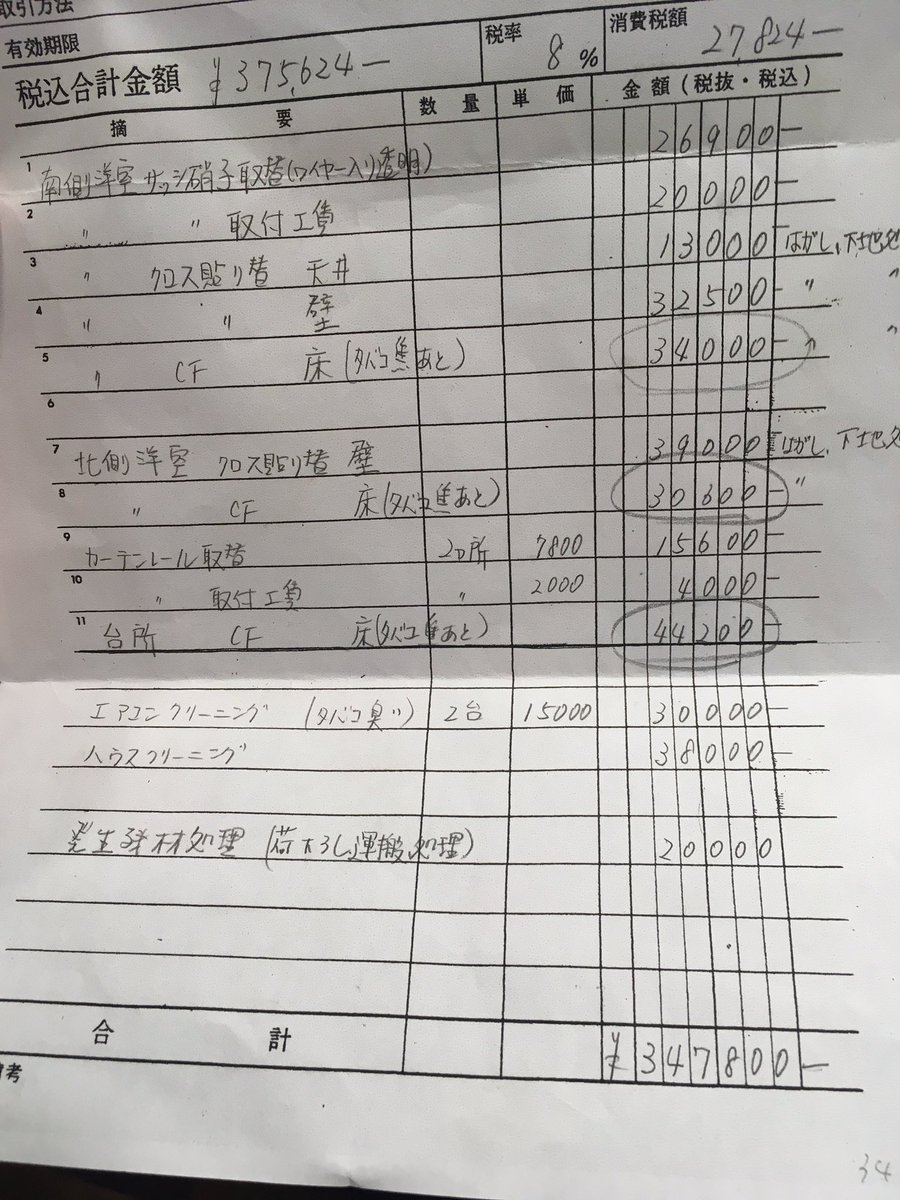 取引方法
有効期限 税率 8 % 消費税額 27,824ー
税込合計金額 ¥375,624ー
摘 要 数 量 単 価 金 額 (税抜・税込)
1 南側洋室 サッシ硝子取替(ワイヤー入り透明) 26900ー
2 〃 〃 取付工賃 20000ー
3 〃 クロス貼り替 天井 13000 はがし、下地処
4 〃 〃 壁 32500ー 〃 〃
5 〃 CF 床(タバコ焦あと) 34000ー 〃 〃
6
7 北側洋室 クロス貼り替 壁 39000 はがし、下地処
8 〃 CF 床(タバコ焦あと) 30600ー 〃
9 カーテンレール取替 2ヶ所 7800 15600ー
10 〃 取付工賃 〃 2000 4000ー
11 台所 CF 床(タバコ焦あと) 44200ー
エアコンクリーニング (タバコ臭い) 2台 15000 30000ー
ハウスクリーニング 38000ー
発生残材処理 (荷下ろし運搬、処理) 20000
合 計 ¥347800ー
考
34